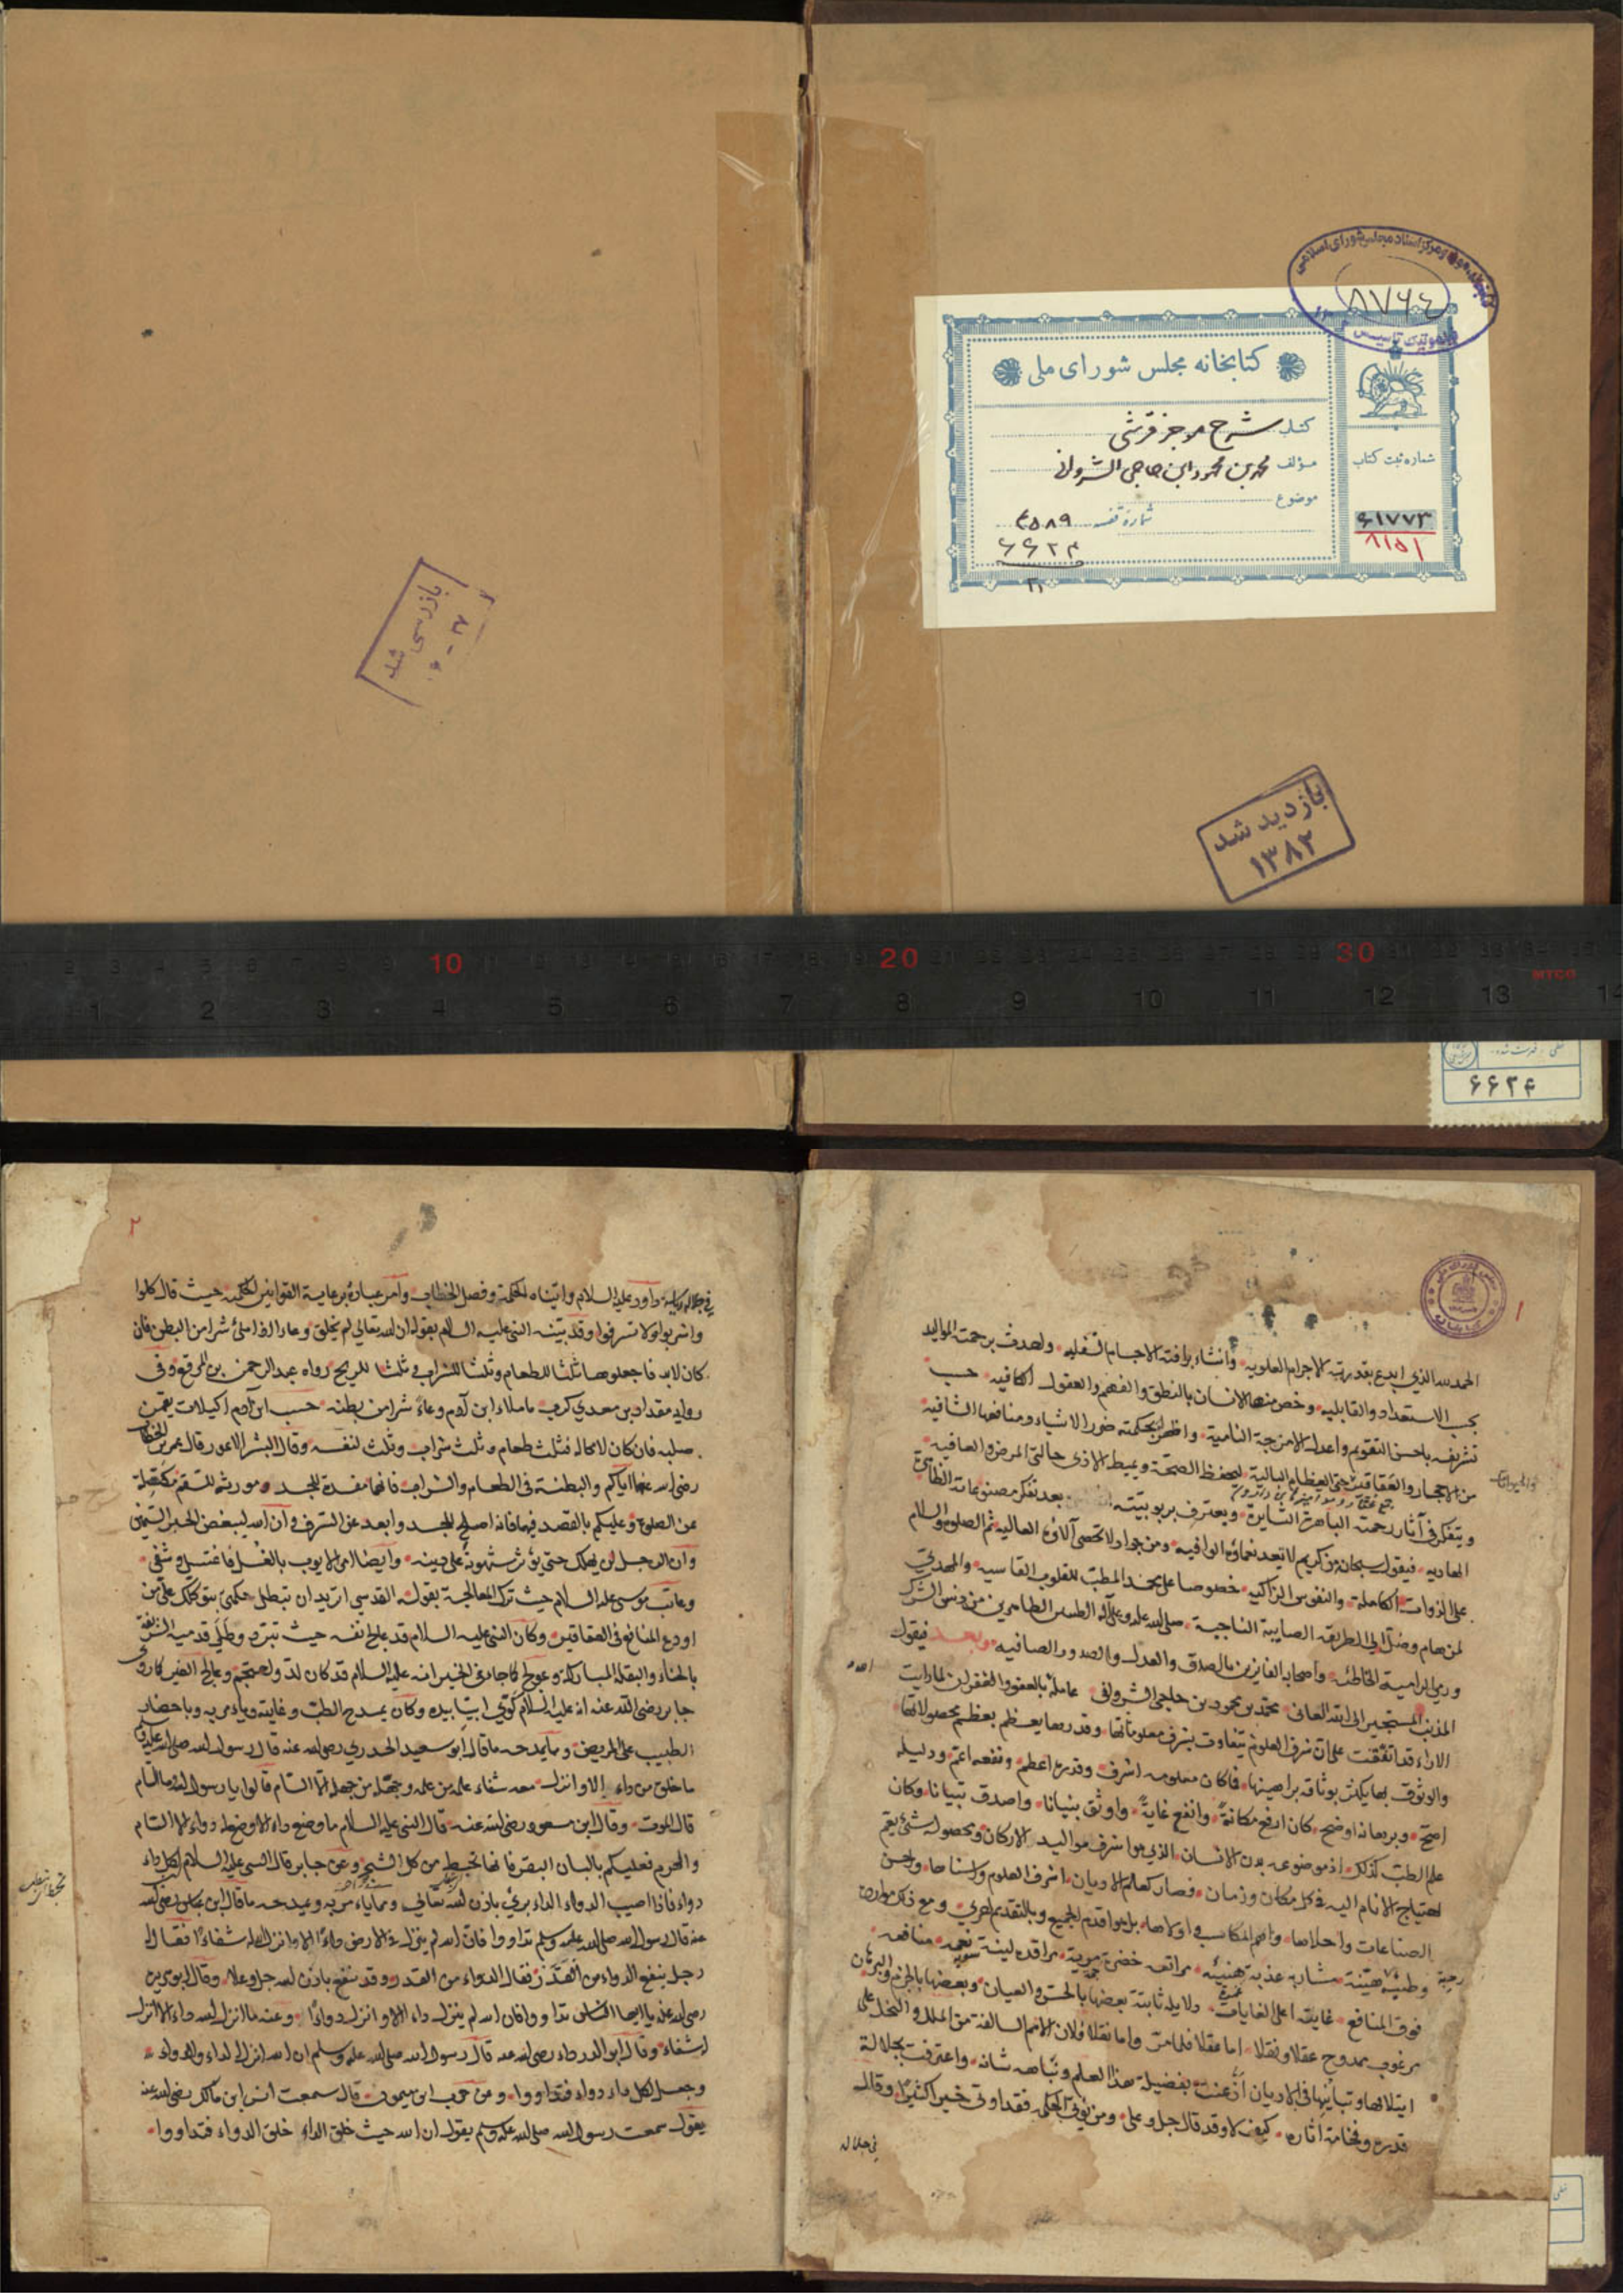 کتابخانه مجلس شورای اسلامی
۸۷۶۴
کتابخانه مجلس شورای ملی
کتاب شرح موجز قرشی
مؤلف محمد بن محمود ابن حاجی الشروانی
موضوع
شماره قفسه ۴۵۸۹
۶۶۲۴
شماره ثبت کتاب
۶۱۷۷۳
۸۱۵۱
بازرسی شد
۶ - ۳۷
بازدید شد
۱۳۸۲
10 20 30
1 2 3 4 5 6 7 8 9 10 11 12 13 14
۶۶۲۴
۱
الحمد لله الذي ابدع بقدرته الاجرام العلويه وانشاء برافته الاجسام السفليه
بحسب الاستعداد والقابليه وخص منها الانسان بالنطق والفهم والعقول الكافيه حسب
تشريفه باحسن التقويم واعدل الامزجة النامية واظهر بحكمته صور الاشياء ومنافعها الشافية
من الاحجار والعقاقير حتى العظام البالية لحفظ الصحة ويميط الاذى حالتي المرض والعافيه
ويتفكر في آثار رحمته الباهرة السايرة ويعترف بربوبيته بعد تفكر مصنوعاته
فيقول سبحانه من كريم لا تعد نعماؤه الوافيه ومن جواد لا تحصى آلاؤه العاليه ثم الصلوة والسلام
على الذوات الكاملة والنفوس الزاكيه خصوصا على محمد المطبب للقلوب القاسيه والمهدي
لمن هام وضل الى الطريقه الصايبة الناجية صلى الله عليه وعلى آله الطيبين الطاهرين من دنس الشرك
واصحابه الفايزين بالصدق والعدل والصدور الصافيه وبعد فيقول
المذنب المستجير الى الله الغاني محمد بن محمود بن حاجي الشرواني عامله بالعفو والغفران لما رايت
الاراء قد اتفقت على ان شرف العلوم يتفاوت بشرف معلوماتها وقدرها يعظم بعظم محصولاتها
والوثوق بها يكثر بوثاقة براهينها فما كان معلومه اشرف وقدره اعظم ونفعه اعم ودليله
اصح وبرهانه اوضح كان ارفع مكانة وانفع غاية واوثق بنيانا واصدق تبيانا وكان
علم الطب كذلك اذ موضوعه بدن الانسان الذي هو اشرف مواليد الاركان ومحصوله شيء يعم
احتياج الانام اليه في كل مكان وزمان فصار كعلم الاديان اشرف العلوم واسناها واحسن
الصناعات واحلاها واهم المكاسب واولاها بل هو اقدم الجميع وبالتقديم احرى ومع ذلك موارده
فوق المنافع غايته اعلى الغايات دلايله ثابتة بعضها بالحس والعيان وبعضها بالجزم والبرهان
مرغوب ممدوح عقلا ونقلا اما عقلا فلما مر واما نقلا فلان الامم السالفة من الملل والنحل على
ايتلافها وتباينها في الاديان اذعنت بفضيلة هذا العلم ونباهه شانه واعترفت بجلالة
قدره وفخامة اثاره كيف لا وقد قال جل وعلى ومن يؤت الحكمه فقد اوتي خيرا كثيرا وقال
في جلاله
۲
داود عليه السلام واتيناه الحكمة وفصل الخطاب وامر عباده برعاية القوانين الحكمية حيث قال كلوا
واشربوا ولا تسرفوا وقد بينه النبي عليه السلام بقوله ان الله تعالى لم يخلق وعاء اذا ملئ شرا من البطن فان
كان لابد فاجعلوها ثلثا للطعام وثلثا للشراب وثلثا للريح رواه عبد الرحمن بن المرقع وفي
رواية مقداد بن معدي كرب ما ملاء ابن آدم وعاء شرا من بطنه حسب ابن آدم اكيلات يقمن
صلبه فان كان لا محاله فثلث طعام وثلث شراب وثلث لنفسه وقال عمر بن الخطاب
رضي الله عنه اياكم والبطنة في الطعام والشراب فانها مفسدة للجسد ومورثة للسقم مكسلة
عن الصلوة وعليكم بالقصد فيهما فانه اصلح للجسد وابعد عن السرف وان الله ليبغض الحبر السمين
وان الرجل لن يهلك حتى يؤثر شهوته على دينه وايضا امر لايوب بالغسل فاغتسل وشفي
وعاتب موسى عليه السلام حيث ترك المعالجة بقوله القدسي اتريد ان تبطل حكمتي بتوكلك علي من
اودع المنافع في العقاقير وكان النبي عليه السلام قد عالج نفسه حيث تبرد وطلى قدميه
بالحناء
جابر رضي الله عنه انه عليه السلام كوى ابيا بيده وكان يمدح الطب وغايته ويامر به وباحضار
الطبيب على المريض ومما يمدحه ما قال ابو سعيد الخدري رضي الله عنه قال رسول الله صلى الله عليه وسلم
ما خلق من داء الا وانزل معه شفاء علمه من علمه وجهله من جهله الا السام قالوا يا رسول الله ما السام
قال الموت وقال ابن مسعود رضي الله عنه قال النبي عليه السلام ما وضع داء الا وضع له دواء الا السام
والهرم فعليكم بالبان البقر فانها تخبط من كل الشجر وعن جابر قال النبي عليه السلام لكل داء
دواء فاذا اصيب الدواء الداء برئ باذن الله تعالى ومما ياء مر به ويمدحه ما قال ابن عباس رضي الله
عنه قال رسول الله صلى الله عليه وسلم تداووا فان الله لم ينزل في الارض داء الا وانزل له شفاء فقال
رجل ينفع الدواء من القدر فقال الدواء من القدر وقد ينفع باذن الله جل وعلا وقال ابو هريرة
رضي الله عنه يا ايها الناس تداووا فان الله لم ينزل داء الا وانزل دواء وعنه ما انزل الله داء الا انزل
له شفاء وقال ابو الدرداء رضي الله عنه قال رسول الله صلى الله عليه وسلم ان الله انزل الداء والدواء
وجعل لكل داء دواء فتداووا ومن حرب ابن ميمون قال سمعت انس ابن مالك رضي الله عنه
يقول سمعت رسول الله صلى الله عليه وسلم يقول ان الله حيث خلق الداء خلق الدواء فتداووا